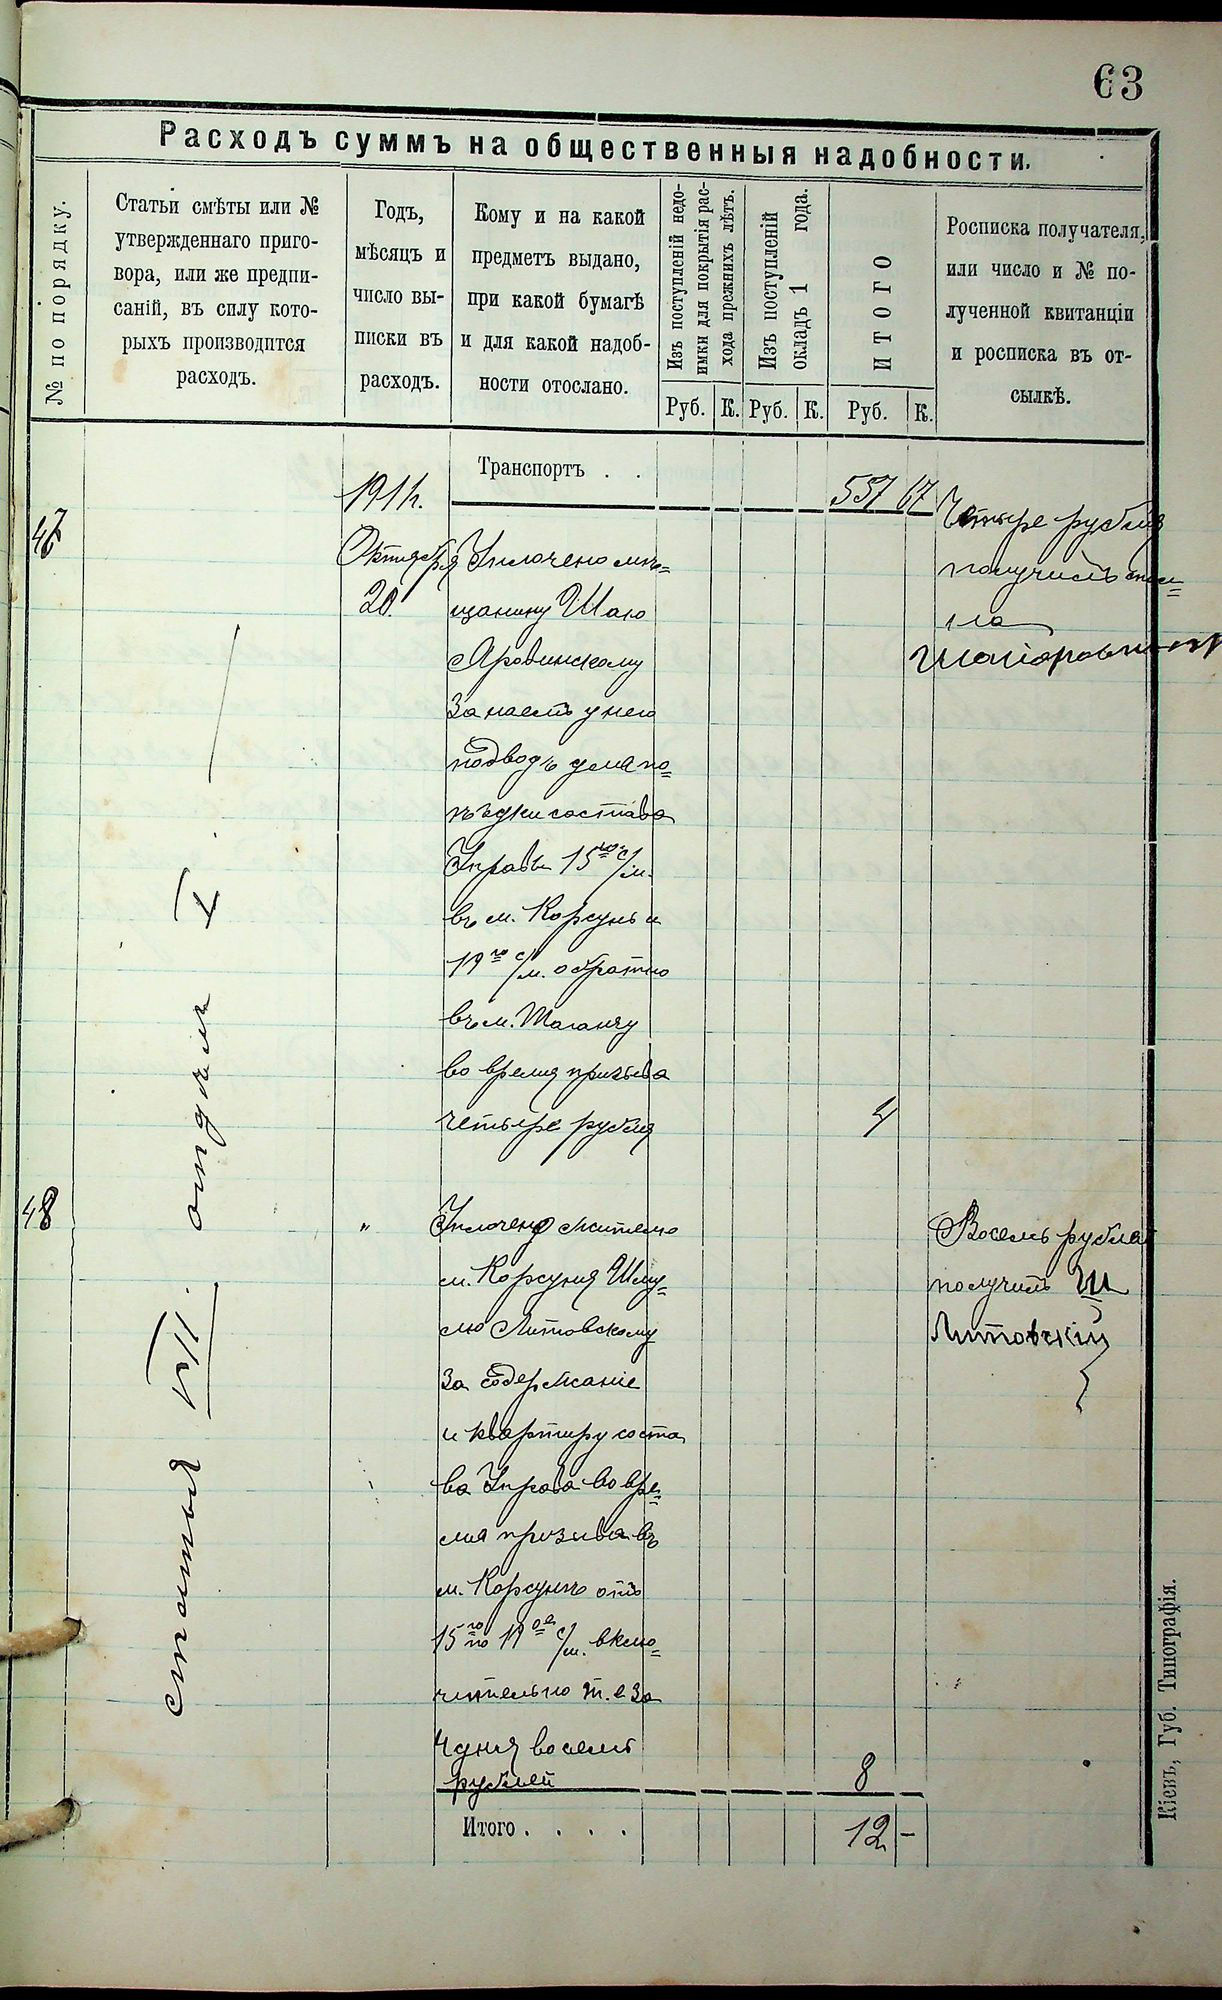 63
Расходъ суммъ на общественныя надобности.
№ по порядку.
Статьи смѣты или №
утвержденнаго приго-
вора, или же предпи-
саній, въ силу кото-
рыхъ производится
расходъ.
Годъ,
мѣсяцъ и
число вы-
писки въ
расходъ.
Кому и на какой
предметъ выдано,
при какой бумагѣ
и для какой надоб-
ности отослано.
Изъ поступленій недо-
имки для покрытія рас-
хода прежнихъ лѣтъ.
Изъ поступленій
окладъ 1 года.
ИТОГО
Росписка получателя,
или число и № по-
лученной квитанціи
и росписка въ от-
сылкѣ.
Руб. К. Руб. К. Руб. К.
Транспортъ . .
557 67
1911 г.
47
Октября
20.
Уплочено мѣ=
щанину Шаю
Яровинскому
за наемъ у него
подводъ для по=
ѣздки состава
Управы 15го с/м.
въ м. Корсунь и
19го с/м. обратно
въ м. Таганчу
во время призыва
четыре рубля
4
Четыре рубля
получилъ
статья VII. отдѣлъ I.
48
"
Уплочено жителю
м. Корсуня Шму=
лю Литовскому
за содержаніе
и квартиру соста
ва Управы во вре=
мя призыва въ
м. Корсунѣ отъ
15го по 19ое с/м. вклю=
чительно т. е за
4 дня восемь
рублей
8
Восемь рублей
получилъ Ш
Литовскій
Итого . . . .
12 -
Кіевъ, Губ. Типографія.